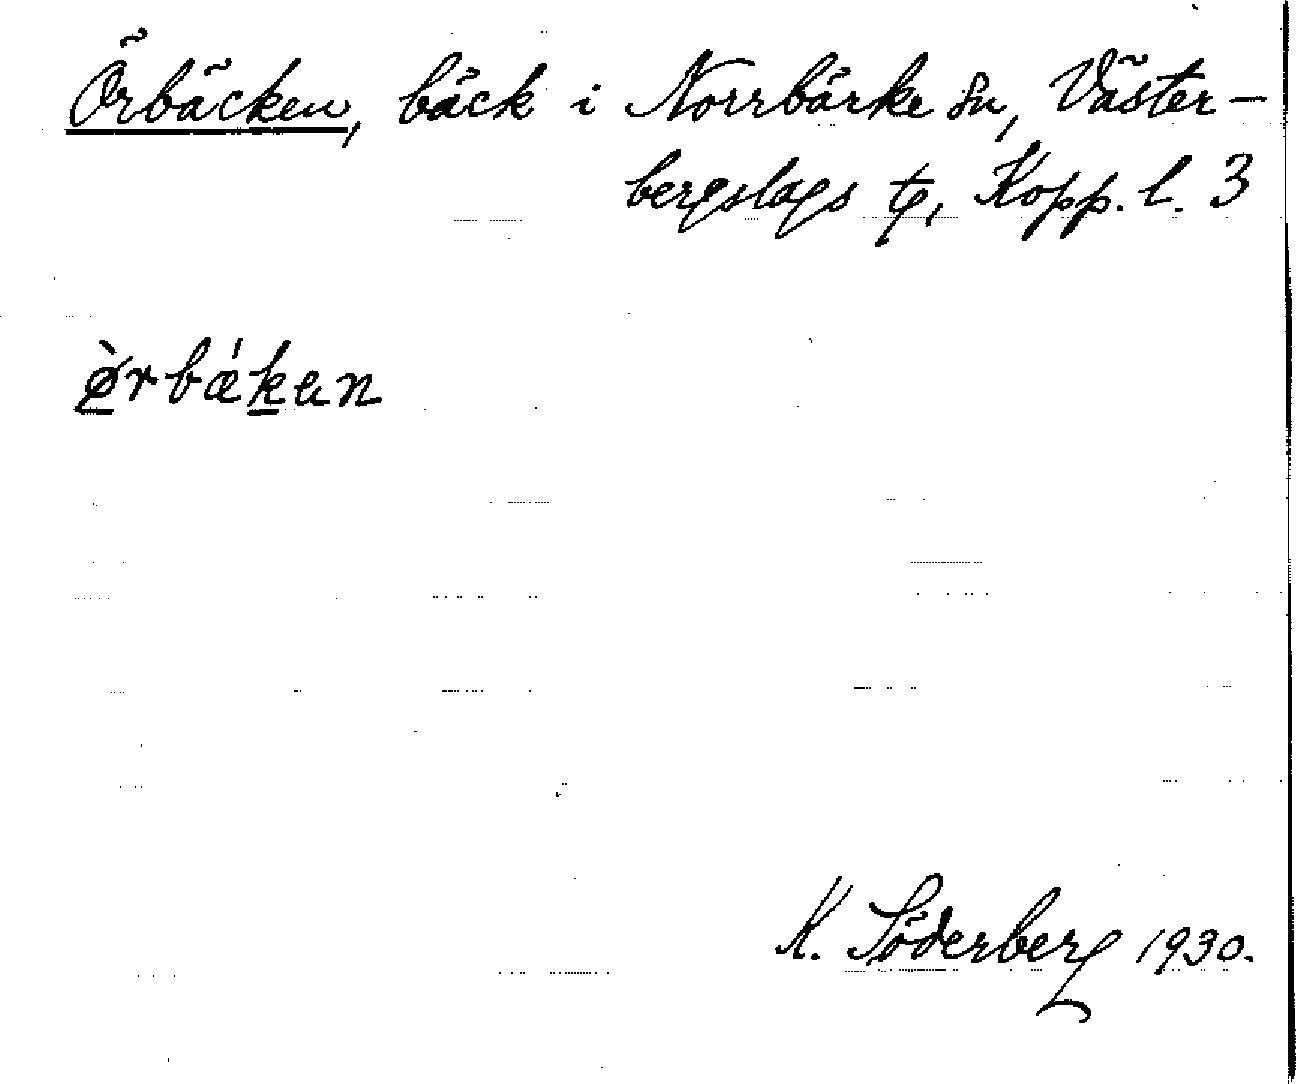 Örbäcken, bäck i Norrbärke sn, Väster-
bergslags tg, Kopp. l. 3
ø̀rbǽkan
K. Söderberg 1930.